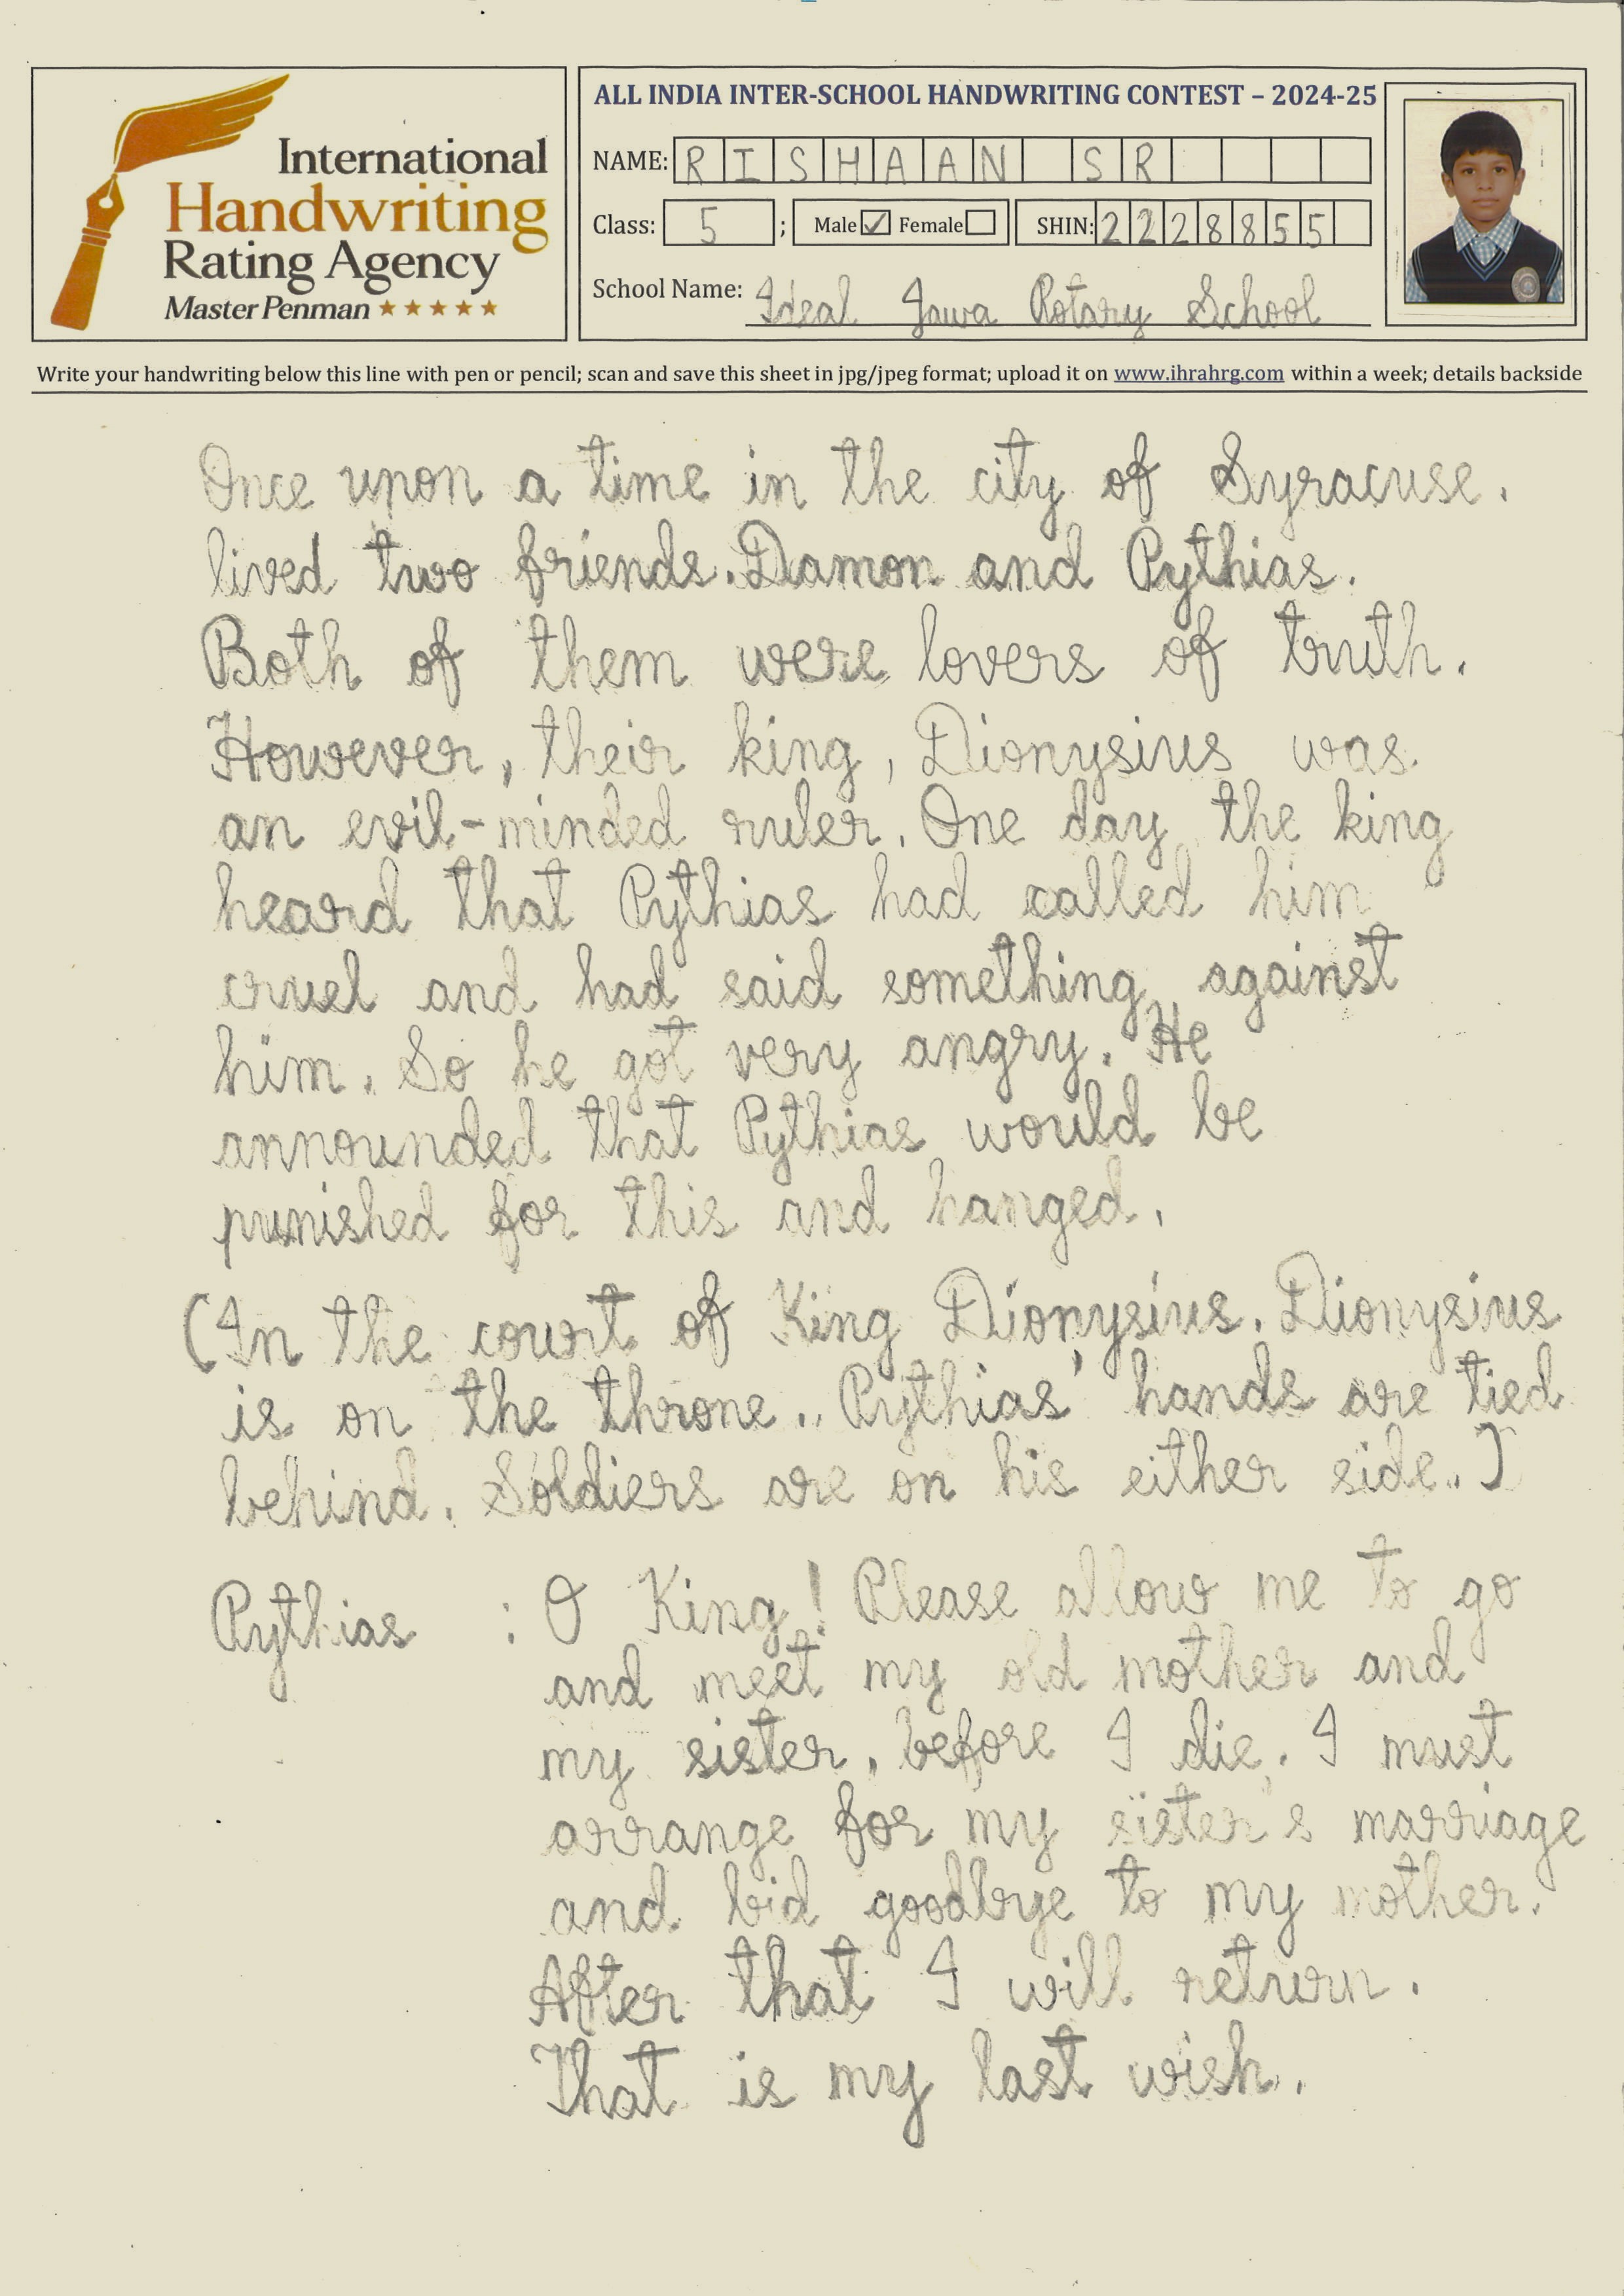 International
Handwriting
Rating Agency
Master Penman ★★★★★
ALL INDIA INTER-SCHOOL HANDWRITING CONTEST – 2024-25
NAME: RISHAAN SR
Class: 5 ; Male ✓ Female SHIN: 2228855
School Name: Ideal Jawa Rotary School
Write your handwriting below this line with pen or pencil; scan and save this sheet in jpg/jpeg format; upload it on www.ihrahrg.com within a week; details backside
Once upon a time in the city of Syracuse.
lived two friends. Damon and Pythias.
Both of them were lovers of truth.
However, their king, Dionysius was
an evil-minded ruler. One day the king
heard that Pythias had called him
cruel and had said something against
him. So he got very angry. He
announded that Pythias would be
punished for this and hanged.
(In the court of King Dionysius. Dionysius
is on the throne.. Pythias' hands are tied
behind. Soldiers are on his either side..)
Pythias : O King! Please allow me to go
and meet my old mother and
my sister, before I die. I must
arrange for my sister's marriage
and bid goodbye to my mother.
After that I will return.
That is my last wish.